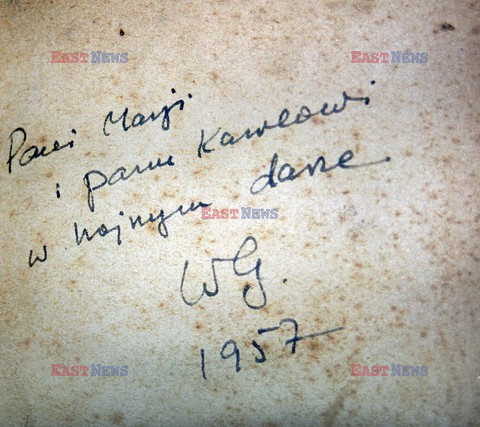 EAST NEWS EAST NEWS
Pani Maryi
i panu Karolowi
w hojnym darze
EAST NEWS
WG.
1957
EAST NEWS EAST NEWS